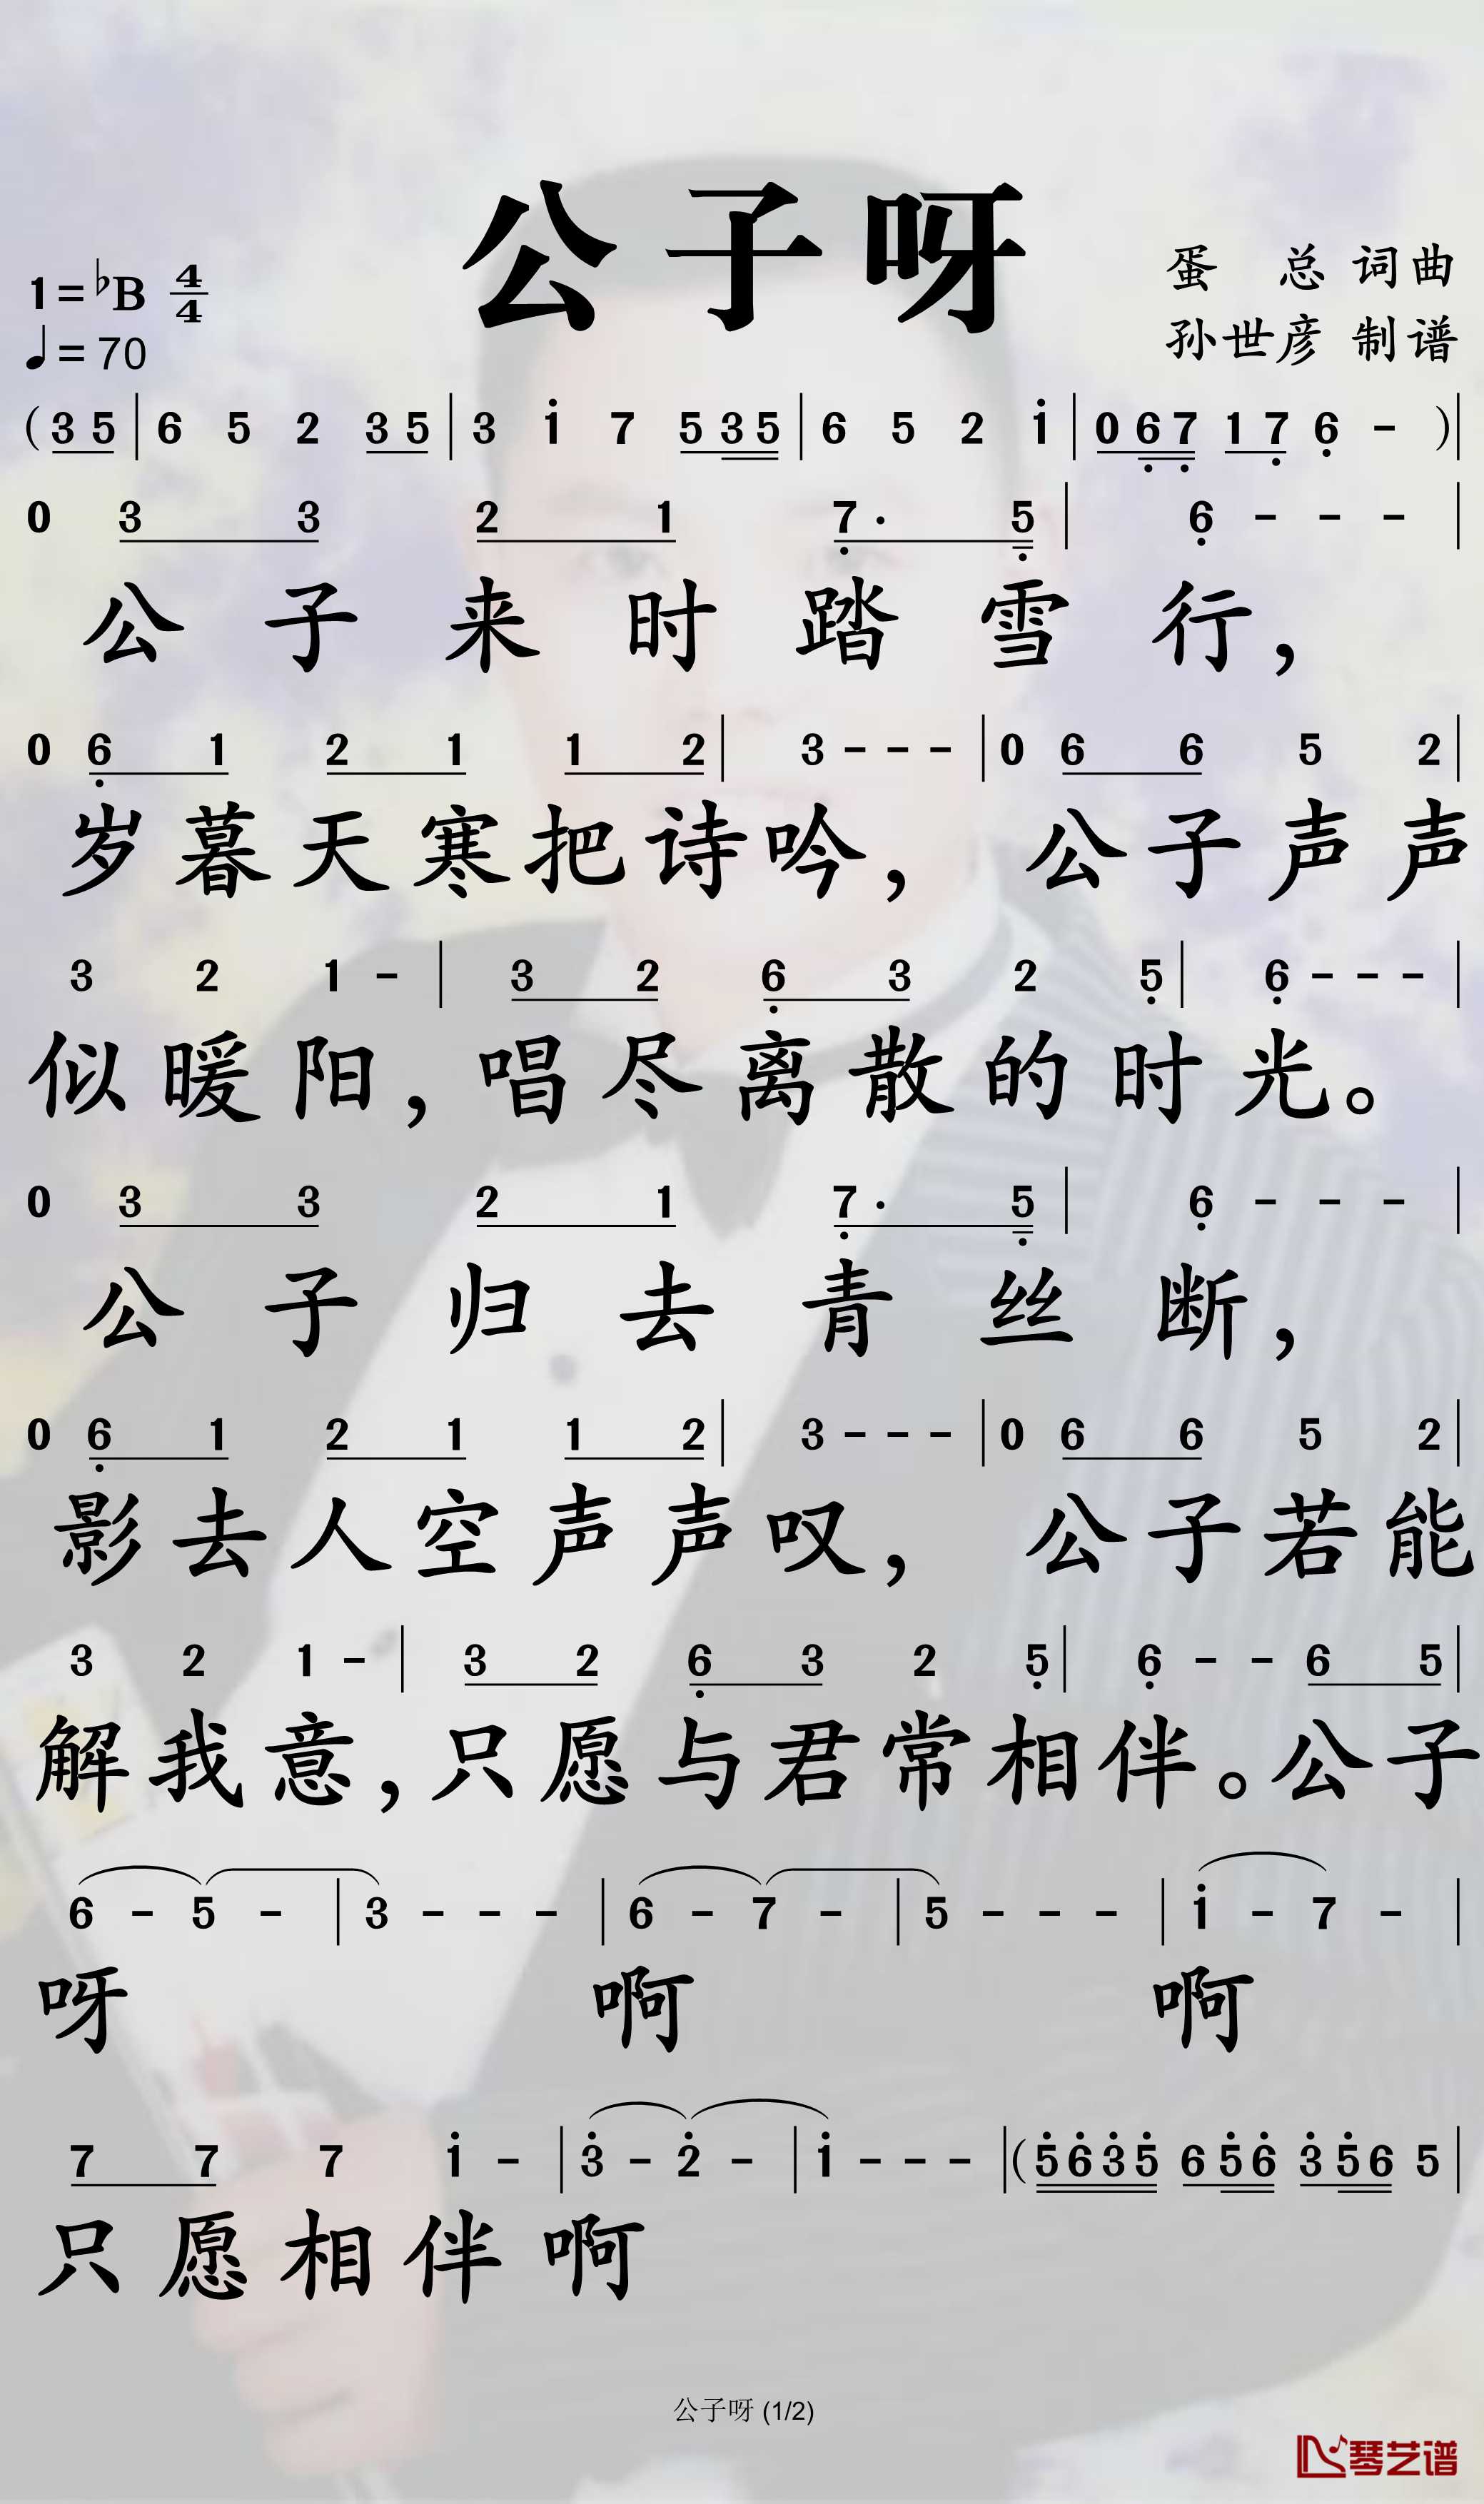 公子呀
1=♭B 4/4
♩=70
蛋 总 词曲
孙世彦 制谱
(3 5 | 6 5 2 3 5 | 3 i̇ 7 5 3 5 | 6 5 2 i̇ | 0 6̣ 7̣ 1 7̣ 6̣ - )|
0 3 3 2 1 7̣· 5̣ | 6̣ - - - |
公子来时踏雪行，
0 6̣ 1 2 1 1 2 | 3 - - - | 0 6 6 5 2 |
岁暮天寒把诗吟， 公子声声
3 2 1 - | 3 2 6̣ 3 2 5̣ | 6̣ - - - |
似暖阳，唱尽离散的时光。
0 3 3 2 1 7̣· 5̣ | 6̣ - - - |
公子归去青丝断，
0 6̣ 1 2 1 1 2 | 3 - - - | 0 6 6 5 2 |
影去人空声声叹， 公子若能
3 2 1 - | 3 2 6̣ 3 2 5̣ | 6̣ - - 6 5 |
解我意，只愿与君常相伴。公子
6 - 5 - | 3 - - - | 6 - 7 - | 5 - - - | 1̇ - 7 - |
呀 啊 啊
7 7 7 1̇ - | 3̇ - 2̇ - | 1̇ - - - |(5̇ 6̇ 3̇ 5̇ 6 5̇ 6̇ 3̇ 5̇ 6 5 |
只愿相伴啊
公子呀 (1/2)
琴艺谱